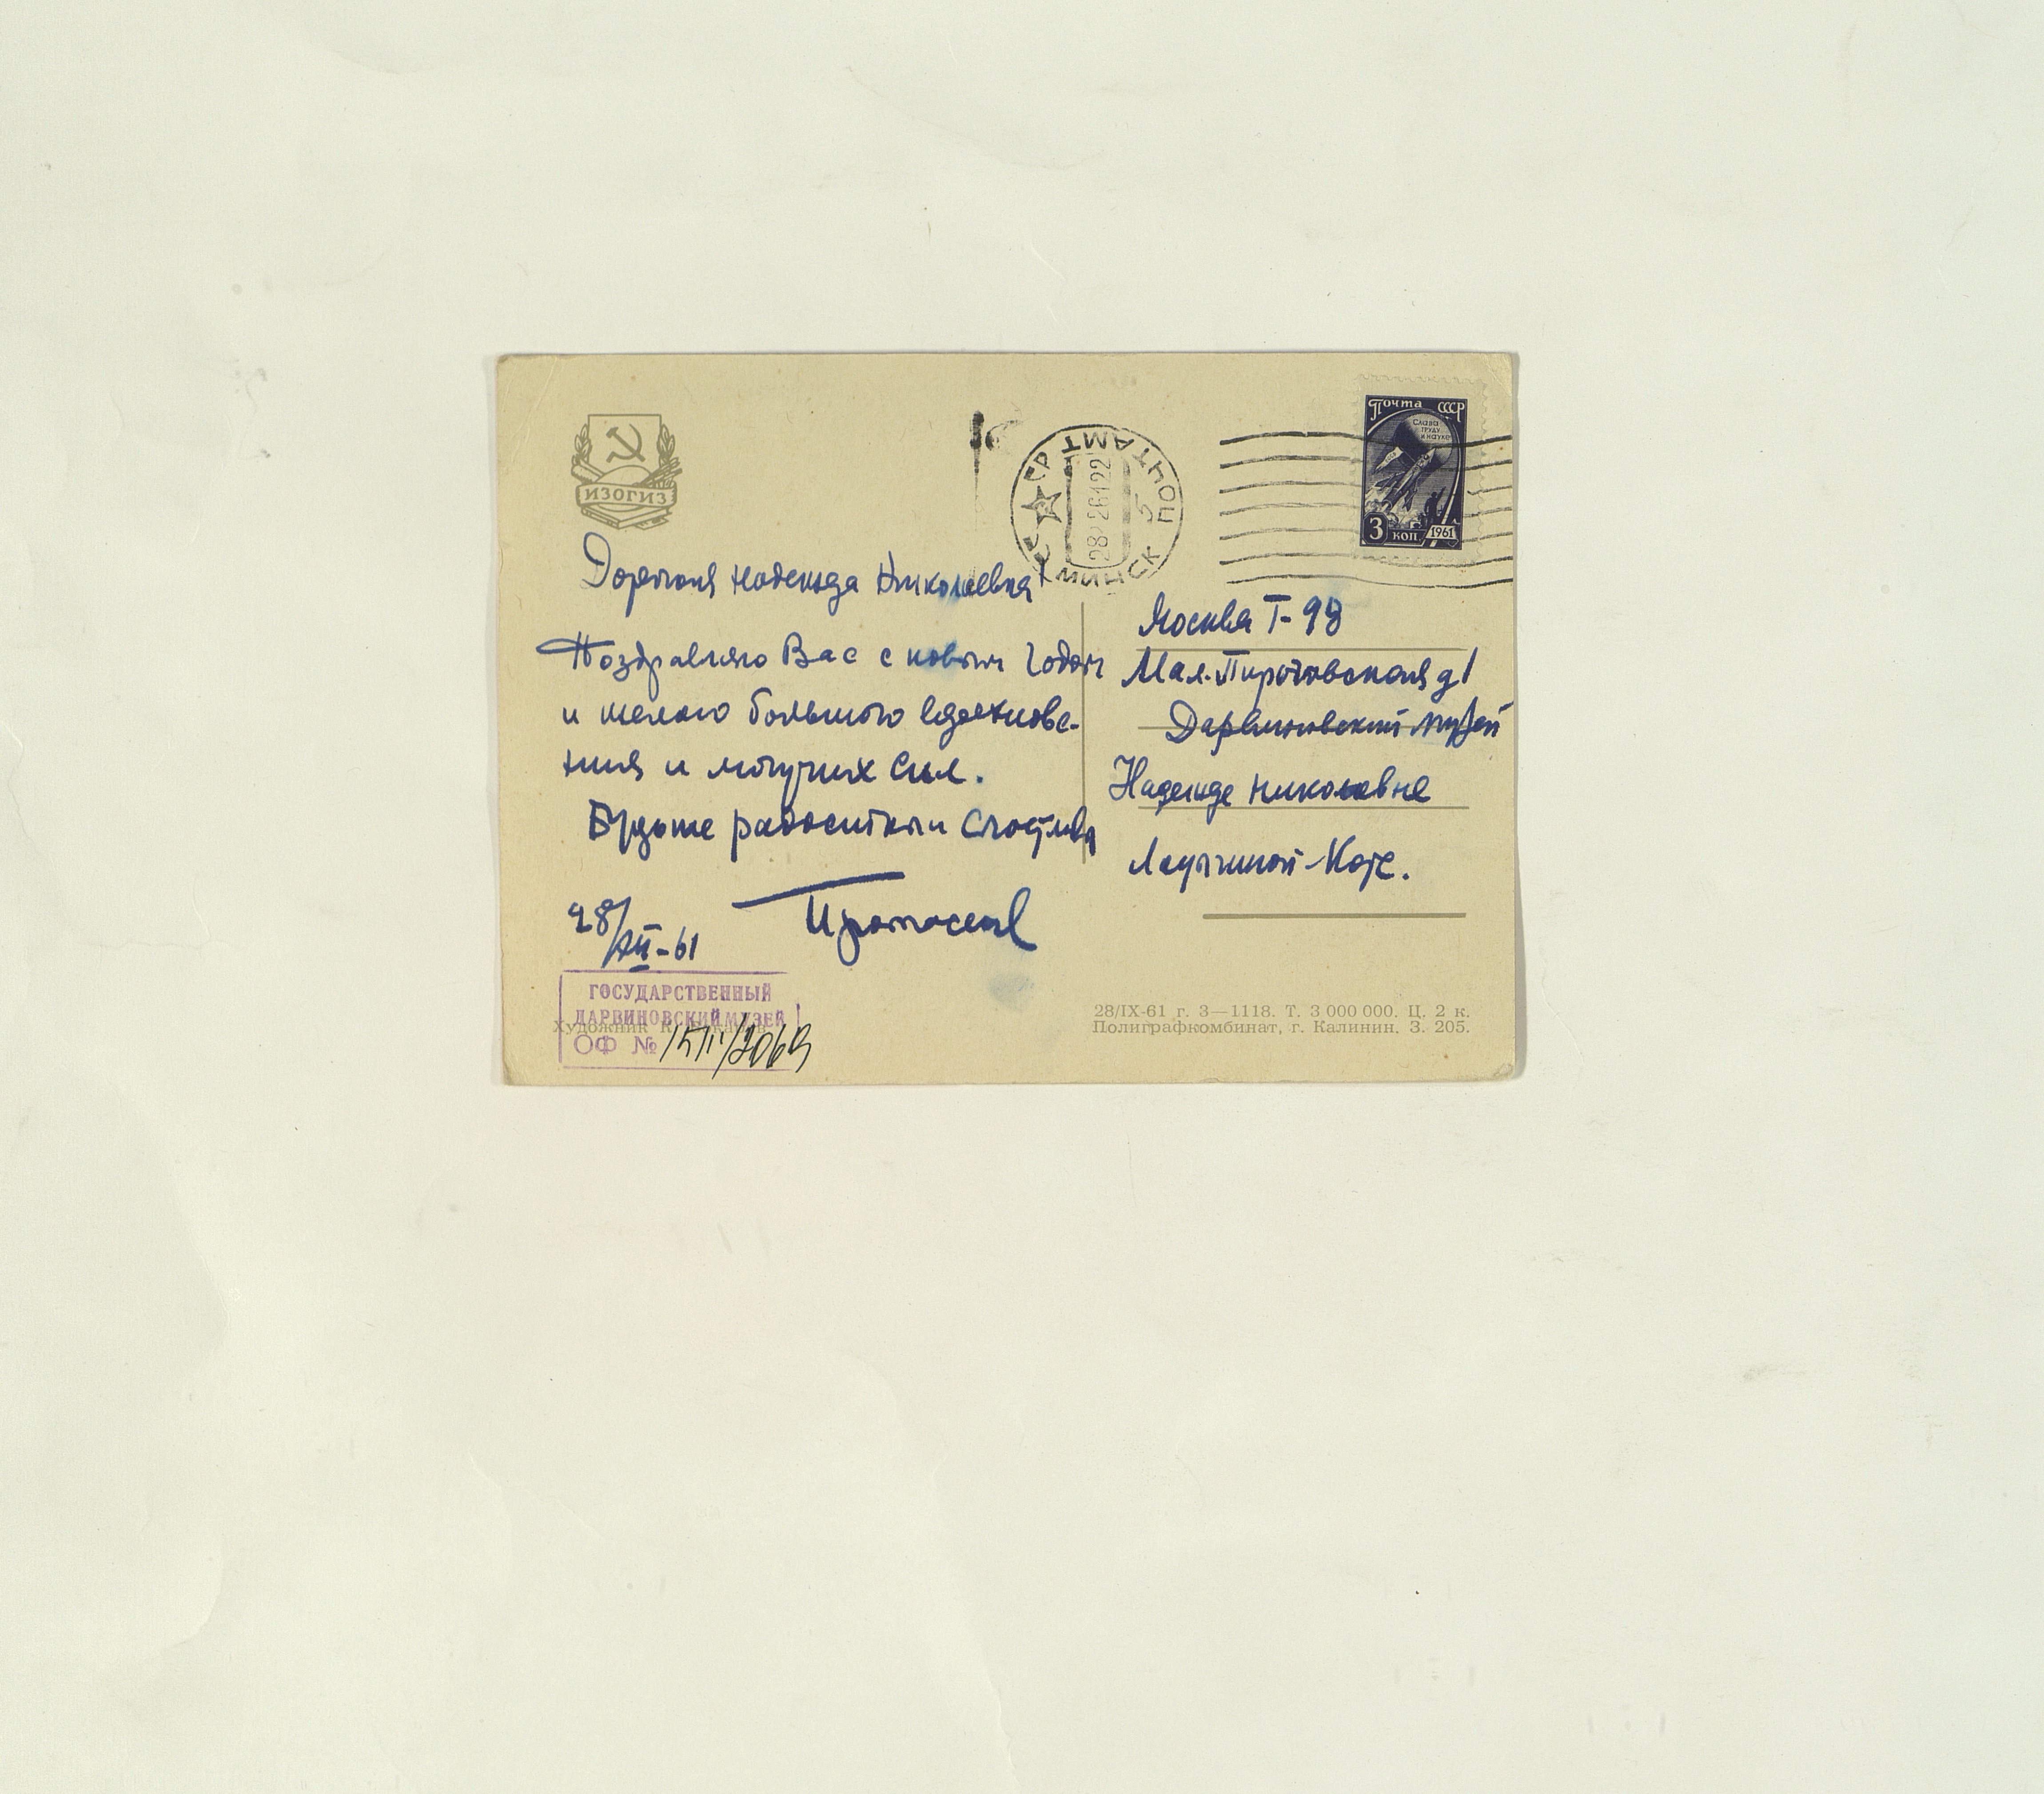 ИЗОГИЗ
Дорогая Надежда Николаевна!
Поздравляю Вас с новым годом
и желаю большого вдохнове-
ния и могучих сил.
Будьте радостны и счастливы
28/XII-61
ПОЧТАМТ
МИНСК
5
Почта СССР
Слава труду и науке
3 коп. 1961
Москва Г-
Мал. Пироговская д 1
Дарвиновский музей
Надежде Николавне
Ладыгиной-Котс.
ГОСУДАРСТВЕННЫЙ
ДАРВИНОВСКИЙ МУЗЕЙ
Художник
ОФ №
28/IX-61 г. З—1118. Т. 3 000 000. Ц. 2 к.
Полиграфкомбинат, г. Калинин. З. 205.